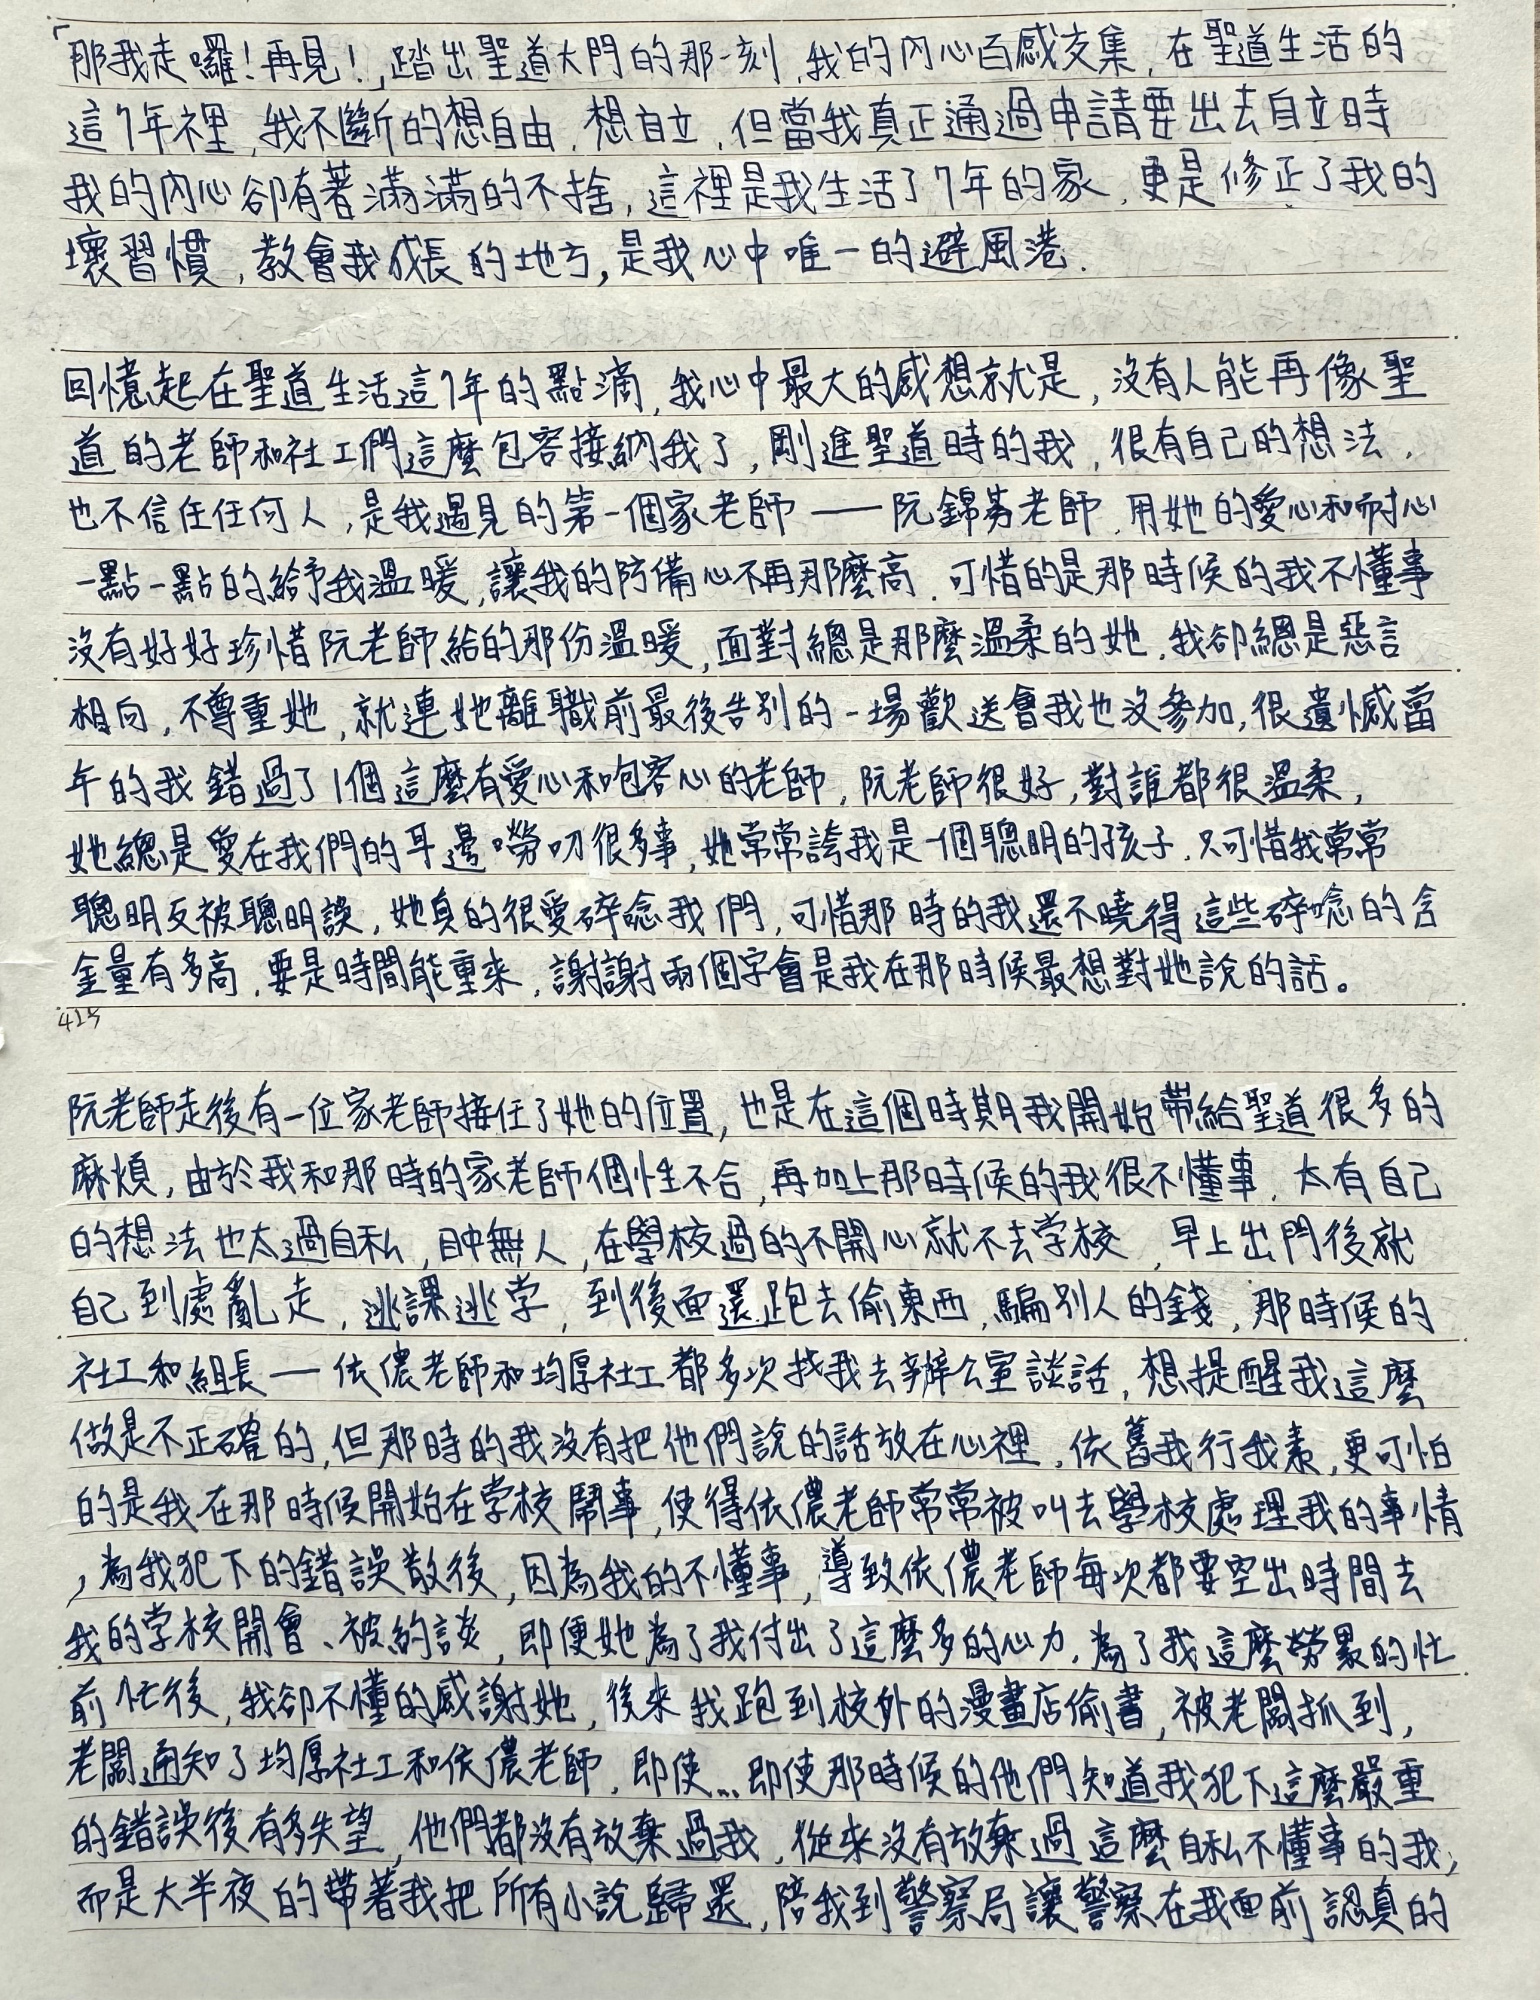 「那我走囉!再見!」踏出聖道大門的那一刻,我的內心百感交集,在聖道生活的
這7年裡,我不斷的想自由,想自立,但當我真正通過申請要出去自立時
我的內心卻有著滿滿的不捨,這裡是我生活了7年的家,更是修正了我的
壞習慣,教會我成長的地方,是我心中唯一的避風港.
回憶起在聖道生活這7年的點滴,我心中最大的感想就是,沒有人能再像聖
道的老師和社工們這麼包容接納我了,剛進聖道時的我,很有自己的想法,
也不信任任何人,是我遇見的第一個家老師——阮錦芳老師,用她的愛心和耐心
一點一點的給予我溫暖,讓我的防備心不再那麼高.可惜的是那時候的我不懂事
沒有好好珍惜阮老師給的那份溫暖,面對總是那麼溫柔的她,我卻總是惡言
相向,不尊重她,就連她離職前最後告別的一場歡送會我也沒參加,很遺憾當
年的我錯過了1個這麼有愛心和包容心的老師,阮老師很好,對誰都很溫柔,
她總是愛在我們的耳邊嘮叨很多事,她常常誇我是一個聰明的孩子,只可惜我常常
聰明反被聰明誤,她真的很愛碎唸我們,可惜那時的我還不曉得這些碎唸的含
金量有多高,要是時間能重來,謝謝兩個字會是我在那時候最想對她說的話。
425
阮老師走後有一位家老師接任了她的位置,也是在這個時期我開始帶給聖道很多的
麻煩,由於我和那時的家老師個性不合,再加上那時候的我很不懂事,太有自己
的想法也太過自私,目中無人,在學校過的不開心就不去学校,早上出門後就
自己到處亂走,逃課逃学,到後面還跑去偷東西,騙別人的錢,那時候的
社工和組長—依儂老師和均厚社工都多次找我去辦公室談話,想提醒我這麼
做是不正確的,但那時的我沒有把他們說的話放在心裡,依舊我行我素,更可怕
的是我在那時候開始在学校鬧事,使得依儂老師常常被叫去學校處理我的事情
,為我犯下的錯誤散後,因為我的不懂事,導致依儂老師每次都要空出時間去
我的学校開會、被約談,即便她為了我付出了這麼多的心力,為了我這麼勞累的忙
前忙後,我卻不懂的感謝她,後來我跑到校外的漫畫店偷書,被老闆抓到,
老闆通知了均厚社工和依儂老師,即使...即使那時候的他們知道我犯下這麼嚴重
的錯誤後有多失望,他們都沒有放棄過我,從來沒有放棄過這麼自私不懂事的我,
而是大半夜的帶著我把所有小說歸還,陪我到警察局讓警察在我面前認真的